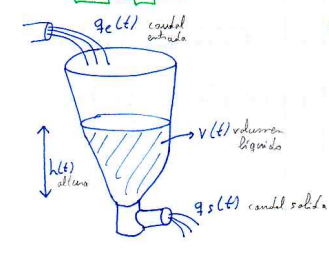 qe(t) caudal
entrada
v(t) volumen
líquido
h(t)
altura
qs(t) caudal salida